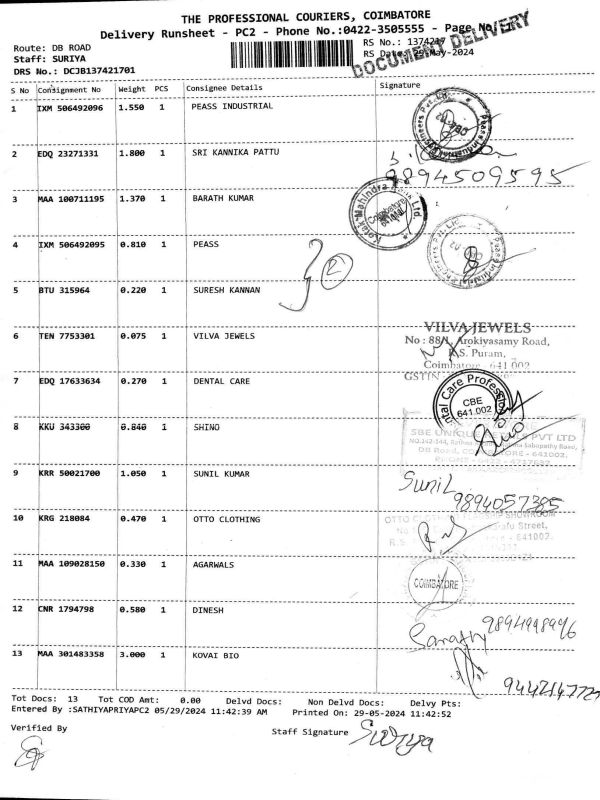 THE PROFESSIONAL COURIERS, COIMBATORE
Delivery Runsheet - PC2 - Phone No.:0422-3505555 - Page No/G
DOCUMENT DELIVERY
Route: DB ROAD
Staff: SURIYA
DRS No.: DCJB137421701
RS No.: 1374217
RS Date: 29-May-2024
S No Consignment No Weight PCS Consignee Details Signature
1 IXM 506492096 1.550 1 PEASS INDUSTRIAL
2 EDQ 23271331 1.800 1 SRI KANNIKA PATTU
9894509595
3 MAA 100711195 1.370 1 BARATH KUMAR
Kotak Mahindra Bank Ltd.
Coimbatore
4 IXM 506492095 0.810 1 PEASS
2
5 BTU 315964 0.220 1 SURESH KANNAN
6 TEN 7753301 0.075 1 VILVA JEWELS
VILVA JEWELS
No : 88/1, Arokiyasamy Road,
R.S. Puram,
Coimbatore - 641 002
GSTIN
7 EDQ 17633634 0.270 1 DENTAL CARE
CBE
641.002
8 KKU 343300 0.840 1 SHINO
SBE UNIQUE PVT LTD
9 KRR 50021700 1.050 1 SUNIL KUMAR
Sunil
9894057385
10 KRG 218084 0.470 1 OTTO CLOTHING
OTTO CLOTHING SHOWROOM
Street,
R.S. - 641002.
11 MAA 109028150 0.330 1 AGARWALS
COIMBATORE
12 CNR 1794798 0.580 1 DINESH
Sarathy
13 MAA 301483358 3.000 1 KOVAI BIO
Tot Docs: 13 Tot COD Amt: 0.00 Delvd Docs: Non Delvd Docs: Delvy Pts:
Entered By :SATHIYAPRIYAPC2 05/29/2024 11:42:39 AM Printed On: 29-05-2024 11:42:52
Verified By
Staff Signature Suriya